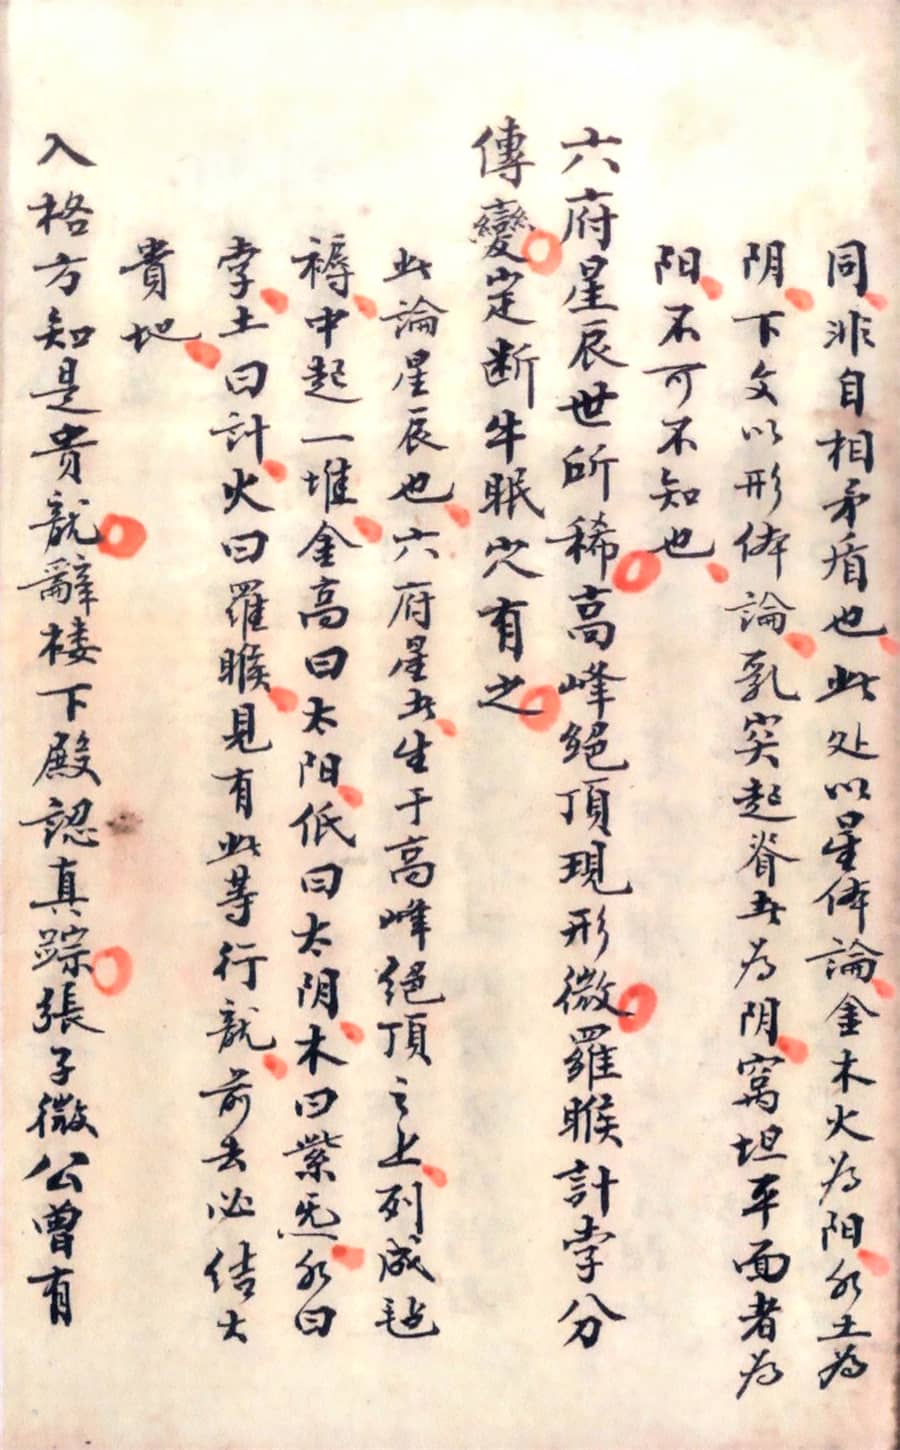 同非自相矛盾也此处以星体論金木火为阳水土為
阴下文以形体論乳突起脊者为阴窩坦平面者为
阳不可不知也
六府星辰世所稀高峰絕頂現形微羅睺計孛分
傳變定断牛眠穴有之
此論星辰也六府星者生于高峰絕頂之上列成毡
褥中起一堆金高曰太阳低曰太阴木曰紫炁水曰
孛土曰計火曰羅睺見有此等行龍前去必结大
貴地
入格方知是贵龍辭楼下殿認真踪張子微公曾有